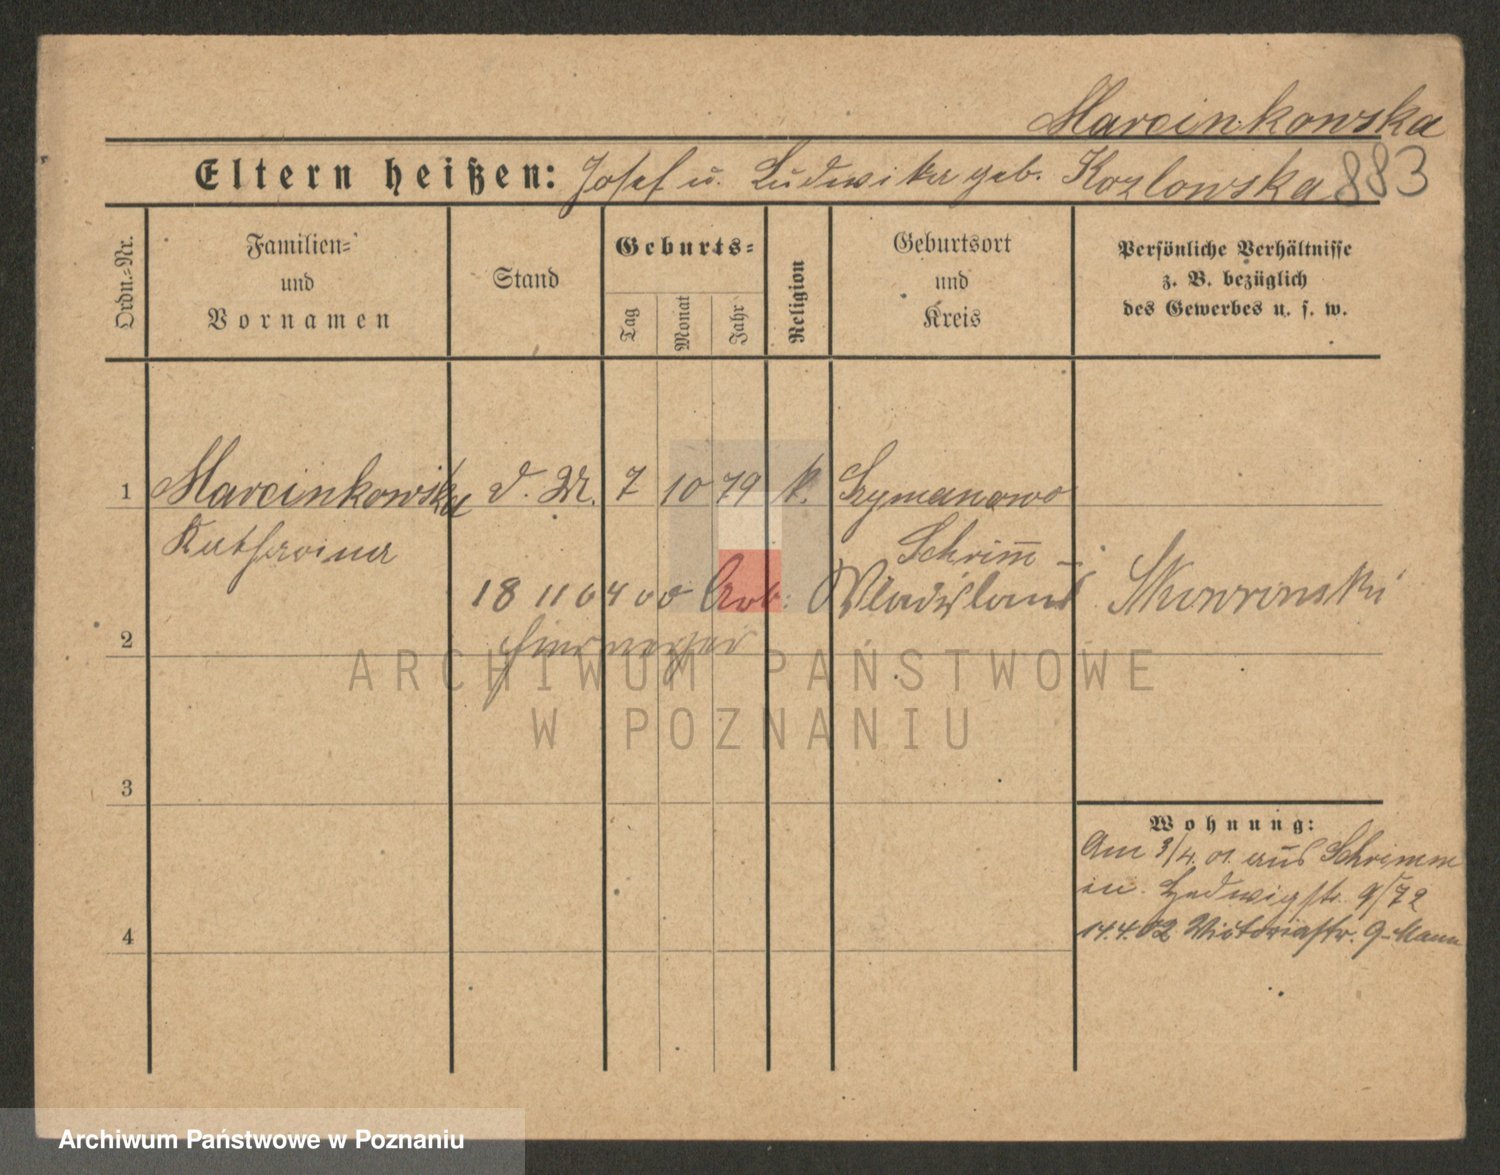 Marcinkowska
Eltern heißen: Josef u. Ludwika geb. Kozlowska 883
Ordn.-Nr.
Familien- und Vornamen
Stand
Geburts-
Tag
Monat
Jahr
Religion
Geburtsort und Kreis
Persönliche Verhältnisse
z. B. bezüglich
des Gewerbes u. s. w.
1 Marcinkowska d. M. 7 10 79 k. Szymanowo
Katharina Schrimm
18 11 04 00 Arb: Wladislaus Skowronski
2
ARCHIWUM PAŃSTWOWE
W POZNANIU
3
Wohnung:
Am 3/4. 01. aus Schrimm
in. Hedwigstr. 9/72
4
14.4.02 Victoriastr. 9-
Archiwum Państwowe w Poznaniu